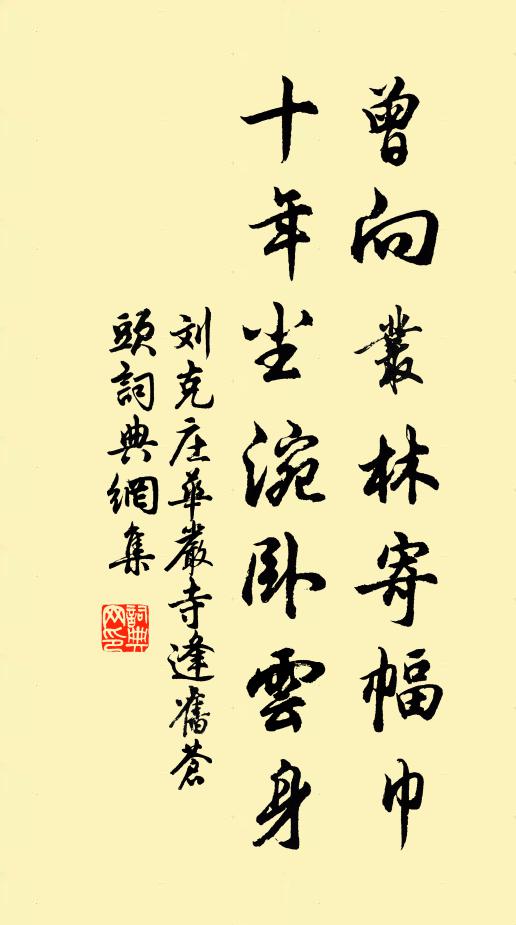 曾向叢林寄幅巾
十年尘涴卧雲身
刘克庄華嚴寺逢舊蒼
頭詞典網集
詞典网印